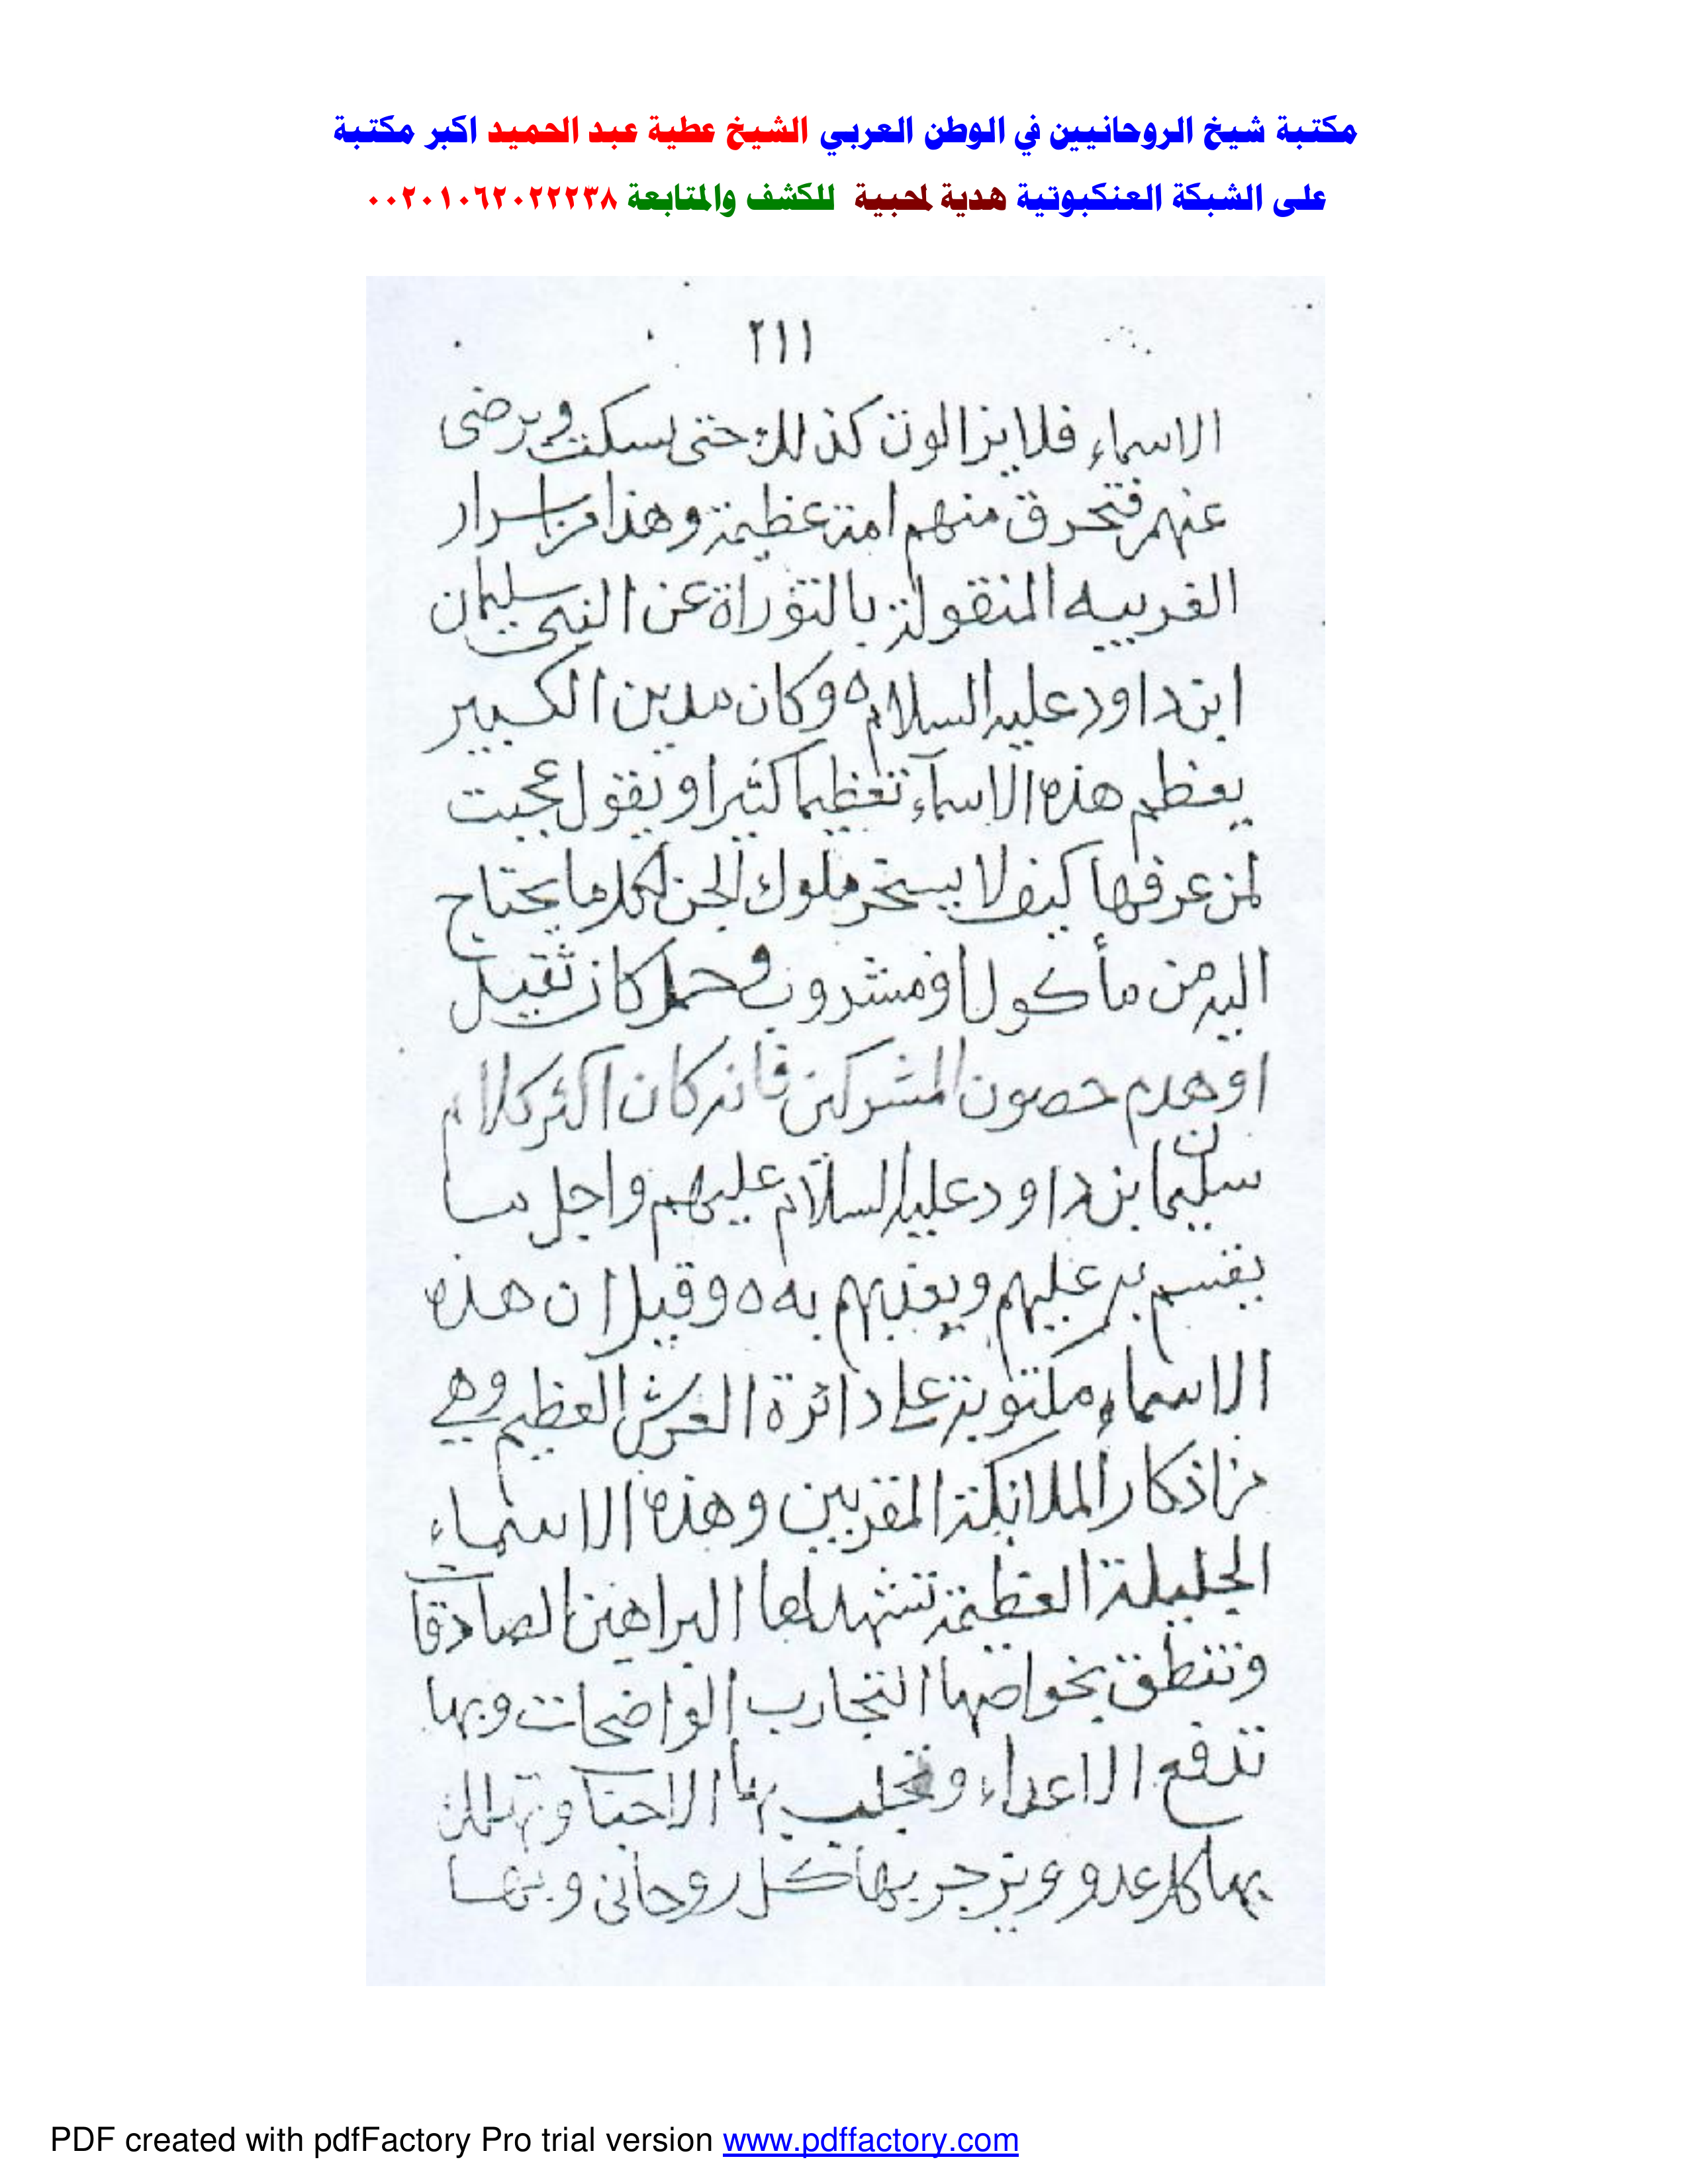 مكتبة شيخ الروحانيين في الوطن العربي الشيخ عطية عبد الحميد اكبر مكتبة
على الشبكة العنكبوتية هدية لمحبية للكشف والمتابعة ٠٠٢٠١٠٦٢٠٢٢٢٣٨
٢١١
الاسماء فلا يزالون كذلك حتى يسكت ويرضى
عنهم فتحرق منهم امة عظيمة وهذا من اسرار
الغريبه المنقولة بالتوراة عن النبي سليمان
ابن داود عليه السلام ه وكان مدين الكبير
يعظم هذه الاسماء تعظيما كثيرا ويقول عجبت
لمن عرفها كيف لا يسخر ملوك الجن لكل ما يحتاج
اليه من مأكول او مشروب وحمل كان ثقيل
او هدم حصون المشركين فانه كان اكثر كلام
سليمان بن داود عليه السلام عليهم واجل ما
يقسم به عليهم ويعذبهم به ه وقيل ان هذه
الاسماء مكتوبة على دائرة العرش العظيم وهي
من اذكار الملائكة المقربين وهذه الاسماء
الجليلة العظيمة تشهد لها البراهين الصادقات
وتنطق بخواصها التجارب الواضحات وبها
تدفع الاعداء وتجلب بها الاحبا وتهلك
بها كل عدو وتزجر بها كل روحانى وبها
PDF created with pdfFactory Pro trial version www.pdffactory.com